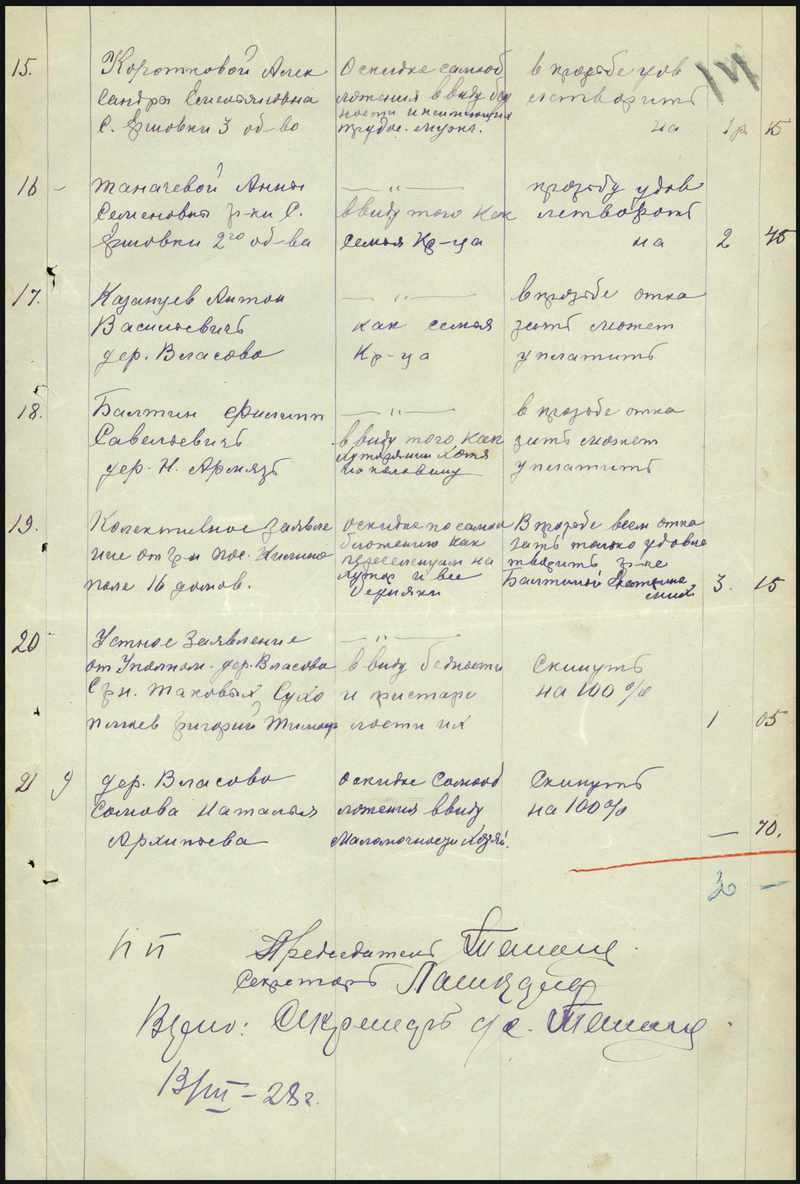 14
15. Коротковой Алек
сандра Емельяновна
с. Ершовки 3 об-во
О скидке самооб
ложения ввиду бед
ности и неимеющия
трудос. мужч.
в прозьбе удов
летворить
на 1р 15
16 - Таначевой Анны
Семеновны гр-ки с.
Ершовки 2го об-ва
— " —
ввиду того как
семья Кр-ца
прозьбу удов
летворить
на 2 45
17. Казанцев Антон
Васильевичъ
дер. Власово
— " —
как семья
Кр-ца
в прозьбе отка
зать может
уплатить
18. Балтин Филипп
Савельевичъ
дер. Н. Армязь
— " —
ввиду того как
хотя
половину
в прозьбе отка
зить может
уплатить
19. Колективное заявле
ние от гр-н пос.
поле 16 домов.
О скидке по само
обложению как
переселенцам на
хутор и все
бедняки
В прозьбе всем отка
зать только удовле
творить гр-не
Балтиной
3. 15
20 Устное Заявление
от Уполном. дер. Власова
Гр-н. Таковых, Сухо
плюев Григорий Тимоф
— " —
ввиду бедности
и пристаре
лости их
Скинуть
на 100%
1 05
21 дер. Власово
Сомова Наталья
Архипьева
О скидке Самооб
ложения ввиду
Маломочности Хозяй.
Скинуть
на 100%
— 70.
30 —
пп Председатель
Секретарь
Верно: Секретарь с/с.
13/III - 28 г.